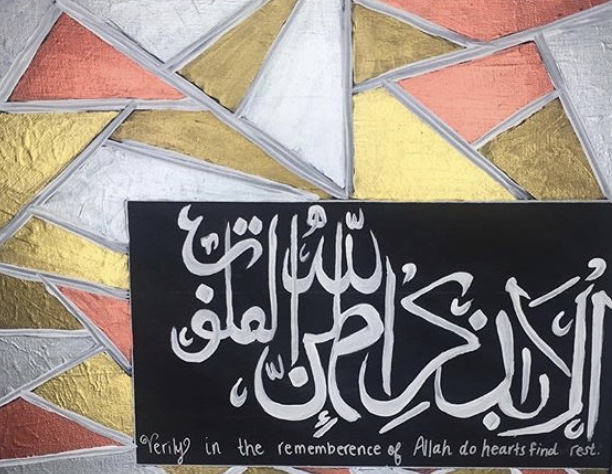 ألا بذكر الله تطمئن القلوب
Verily in the rememberence of Allah do hearts find rest.